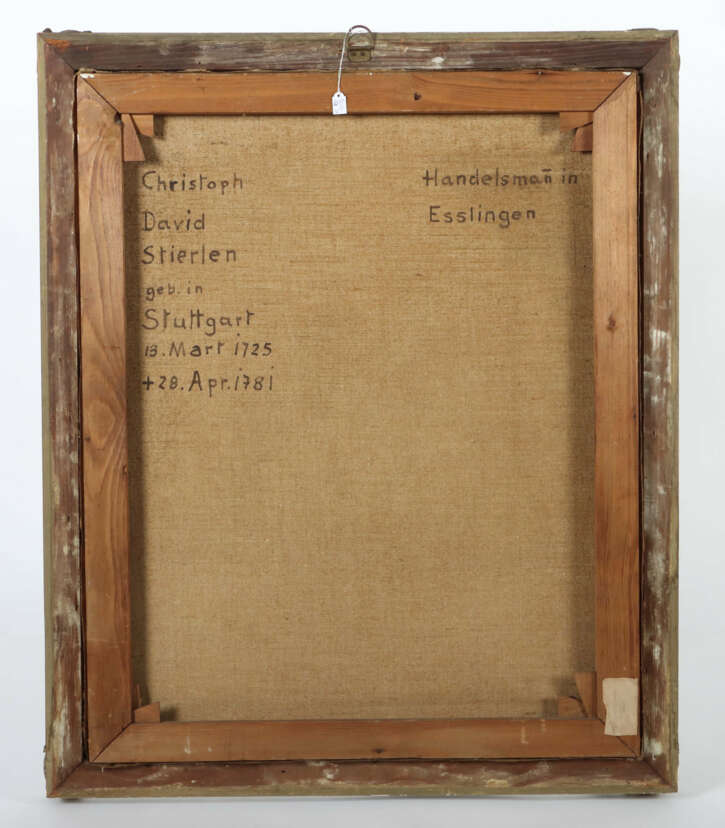 Christoph
David
Stierlen
geb. in
Stuttgart
13. Mart 1725
+ 28. Apr. 1781
Handelsmañ in
Esslingen